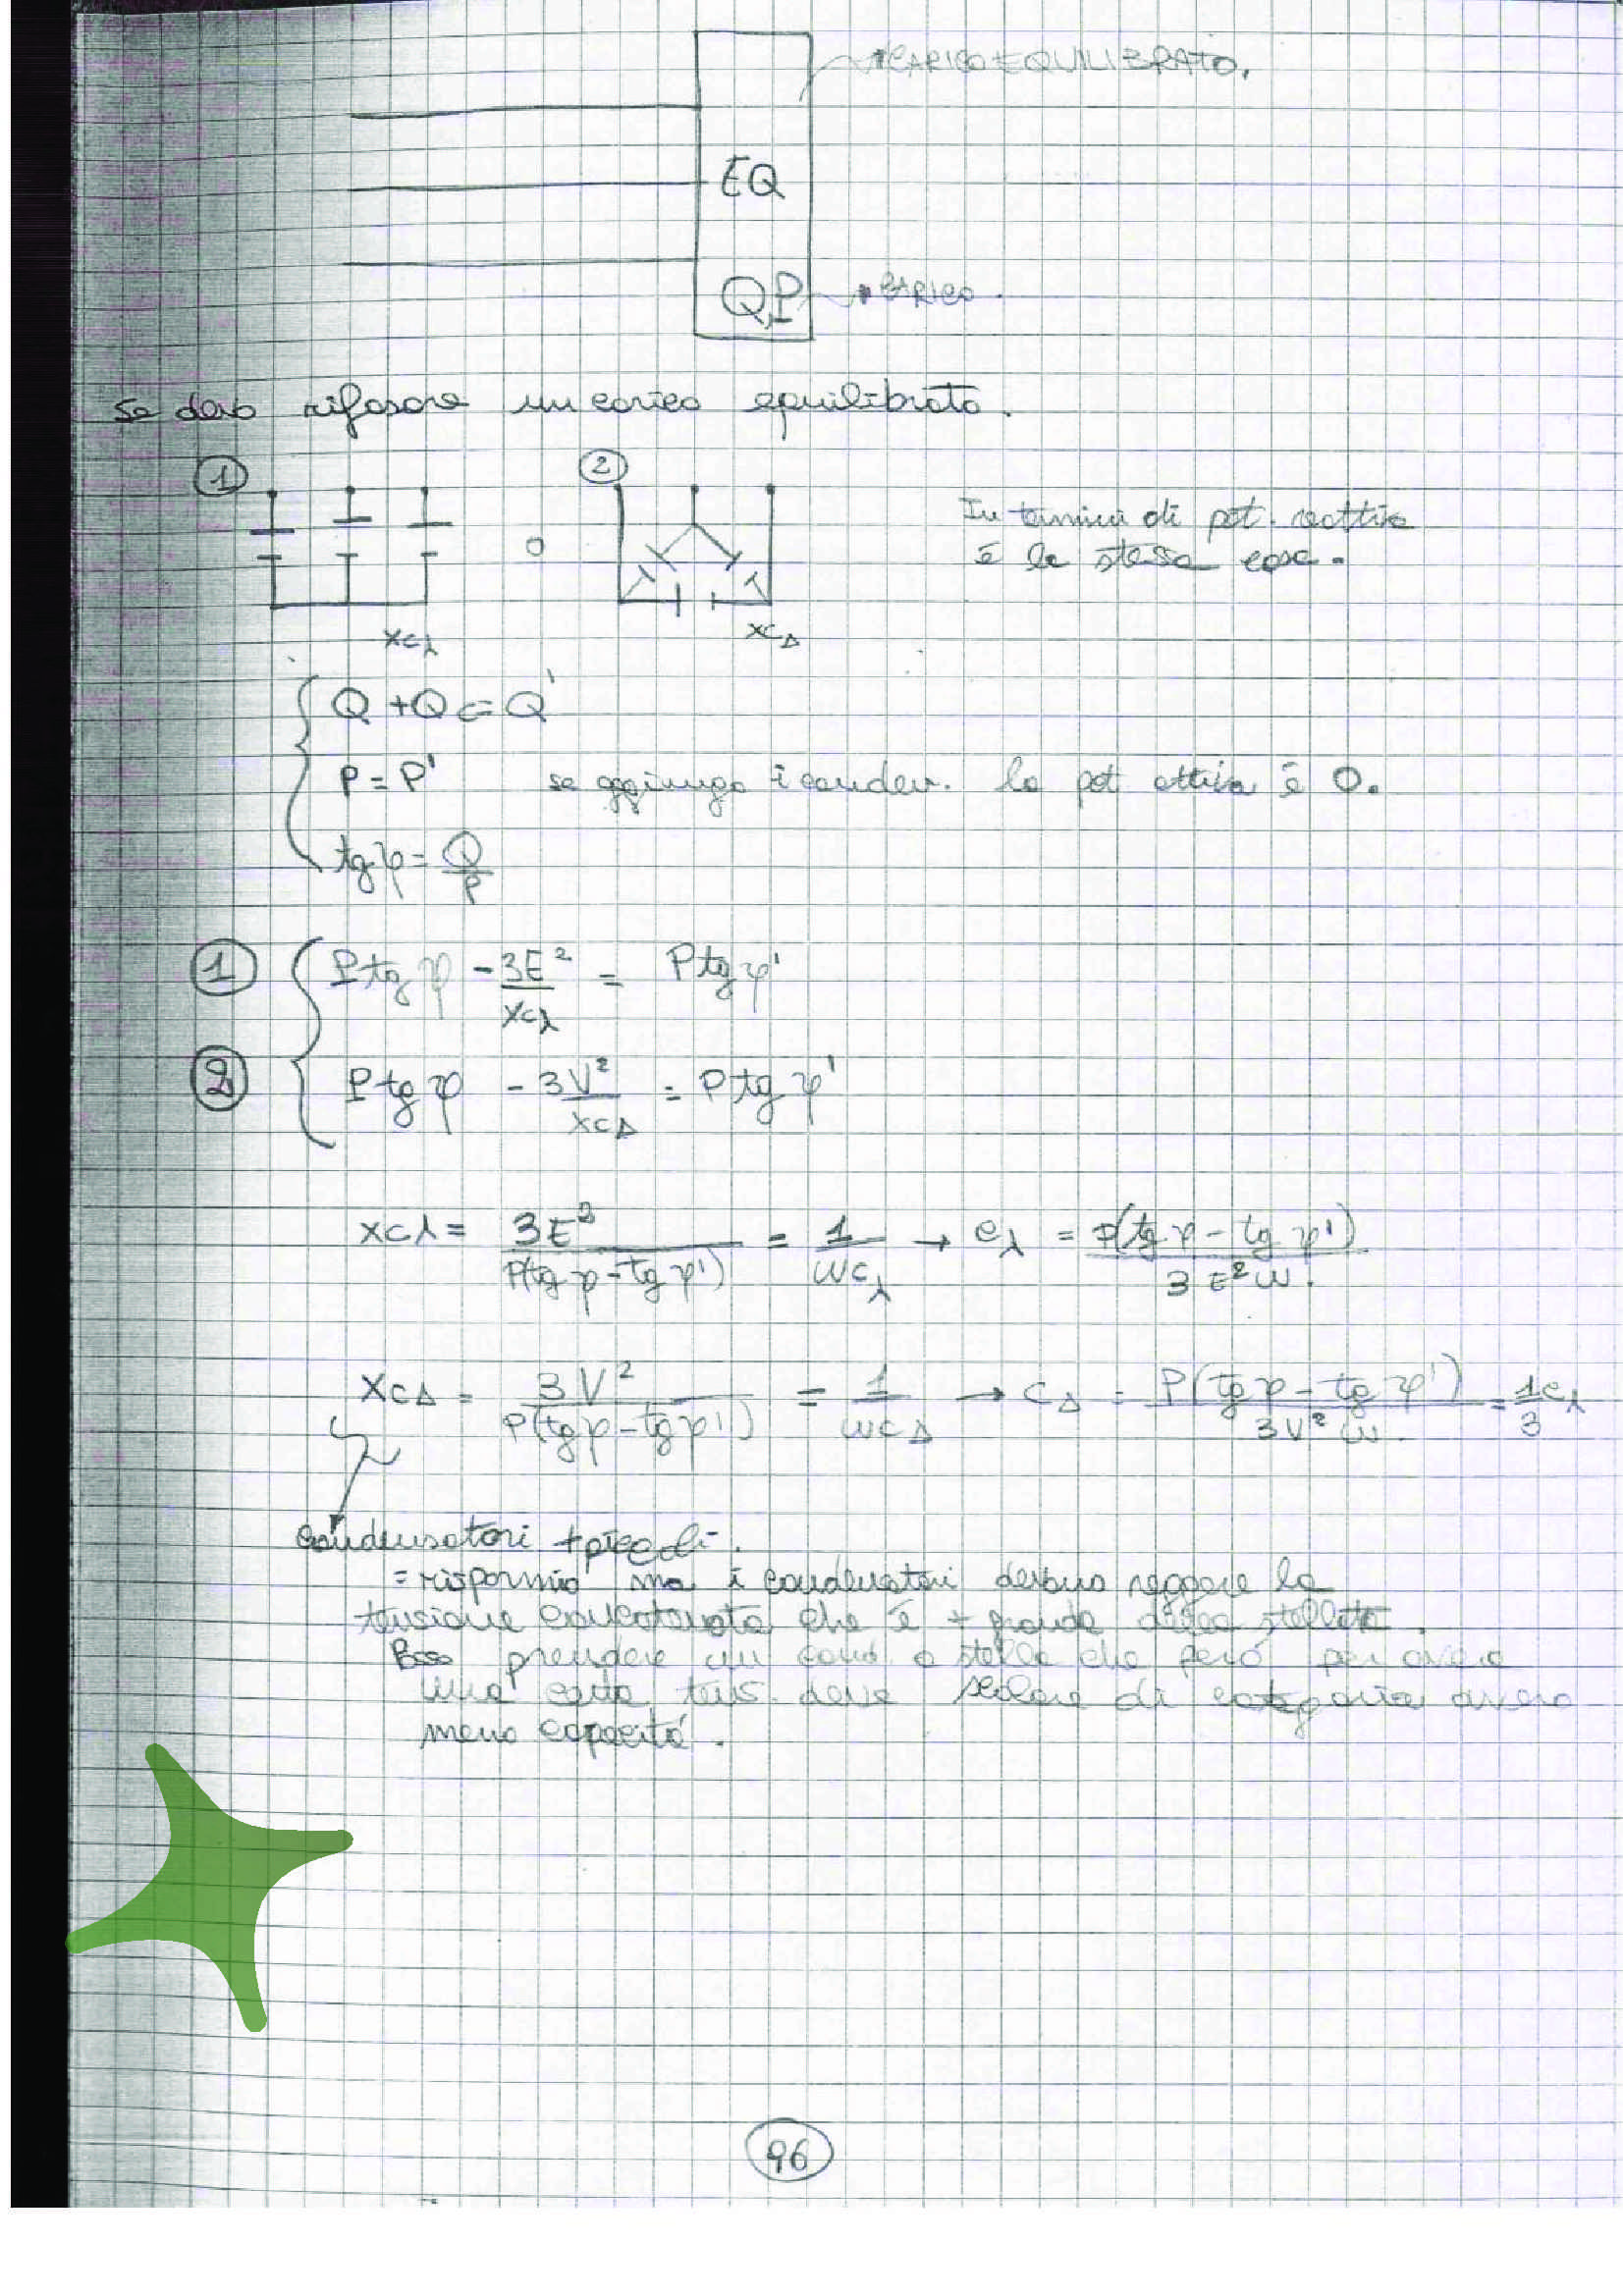 CARICO EQUILIBRATO.
EQ
Q,P CARICO.
Se devo rifasare un carico equilibrato.
1 2
In termini di pot. reattiva
o
è la stessa cosa.
XCλ XCΔ
Q + Qc = Q'
P = P' se aggiungo i conden. la pot attiva è 0.
tg φ = Q/P
1 P tg φ - 3E²/XCλ = P tg φ'
2 P tg φ - 3V²/XCΔ = P tg φ'
XCλ = 3E²/P(tg φ - tg φ') = 1/ωCλ → Cλ = P(tg φ - tg φ')/3E²ω.
XCΔ = 3V²/P(tg φ - tg φ') = 1/ωCΔ → CΔ = P(tg φ - tg φ')/3V²ω. = 1/3 Cλ
Condensatori + piccoli.
= risparmio ma i condensatori devono reggere la
tensione concatenata che è + grande della stellata.
prendere un cond. a stella che però per avere
una certa tens. deve scalare di categoria avere
meno capacità.
96